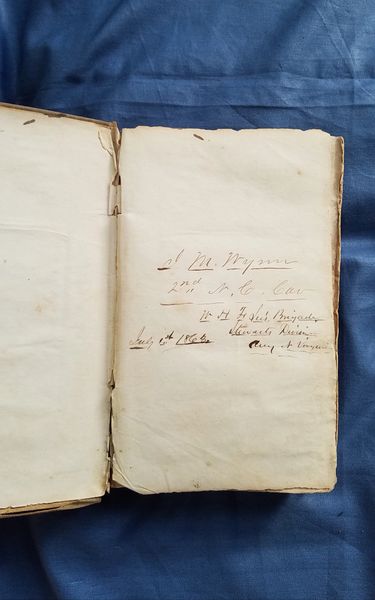 M. Wynn
2nd N. C. Cav
W H F Lee's Brigade
Stewarts Divisi
July 6th 186
Army N Virginia